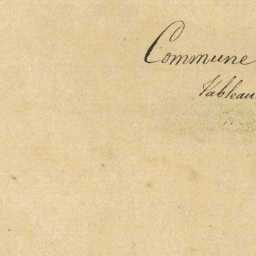 Commune
Tableau